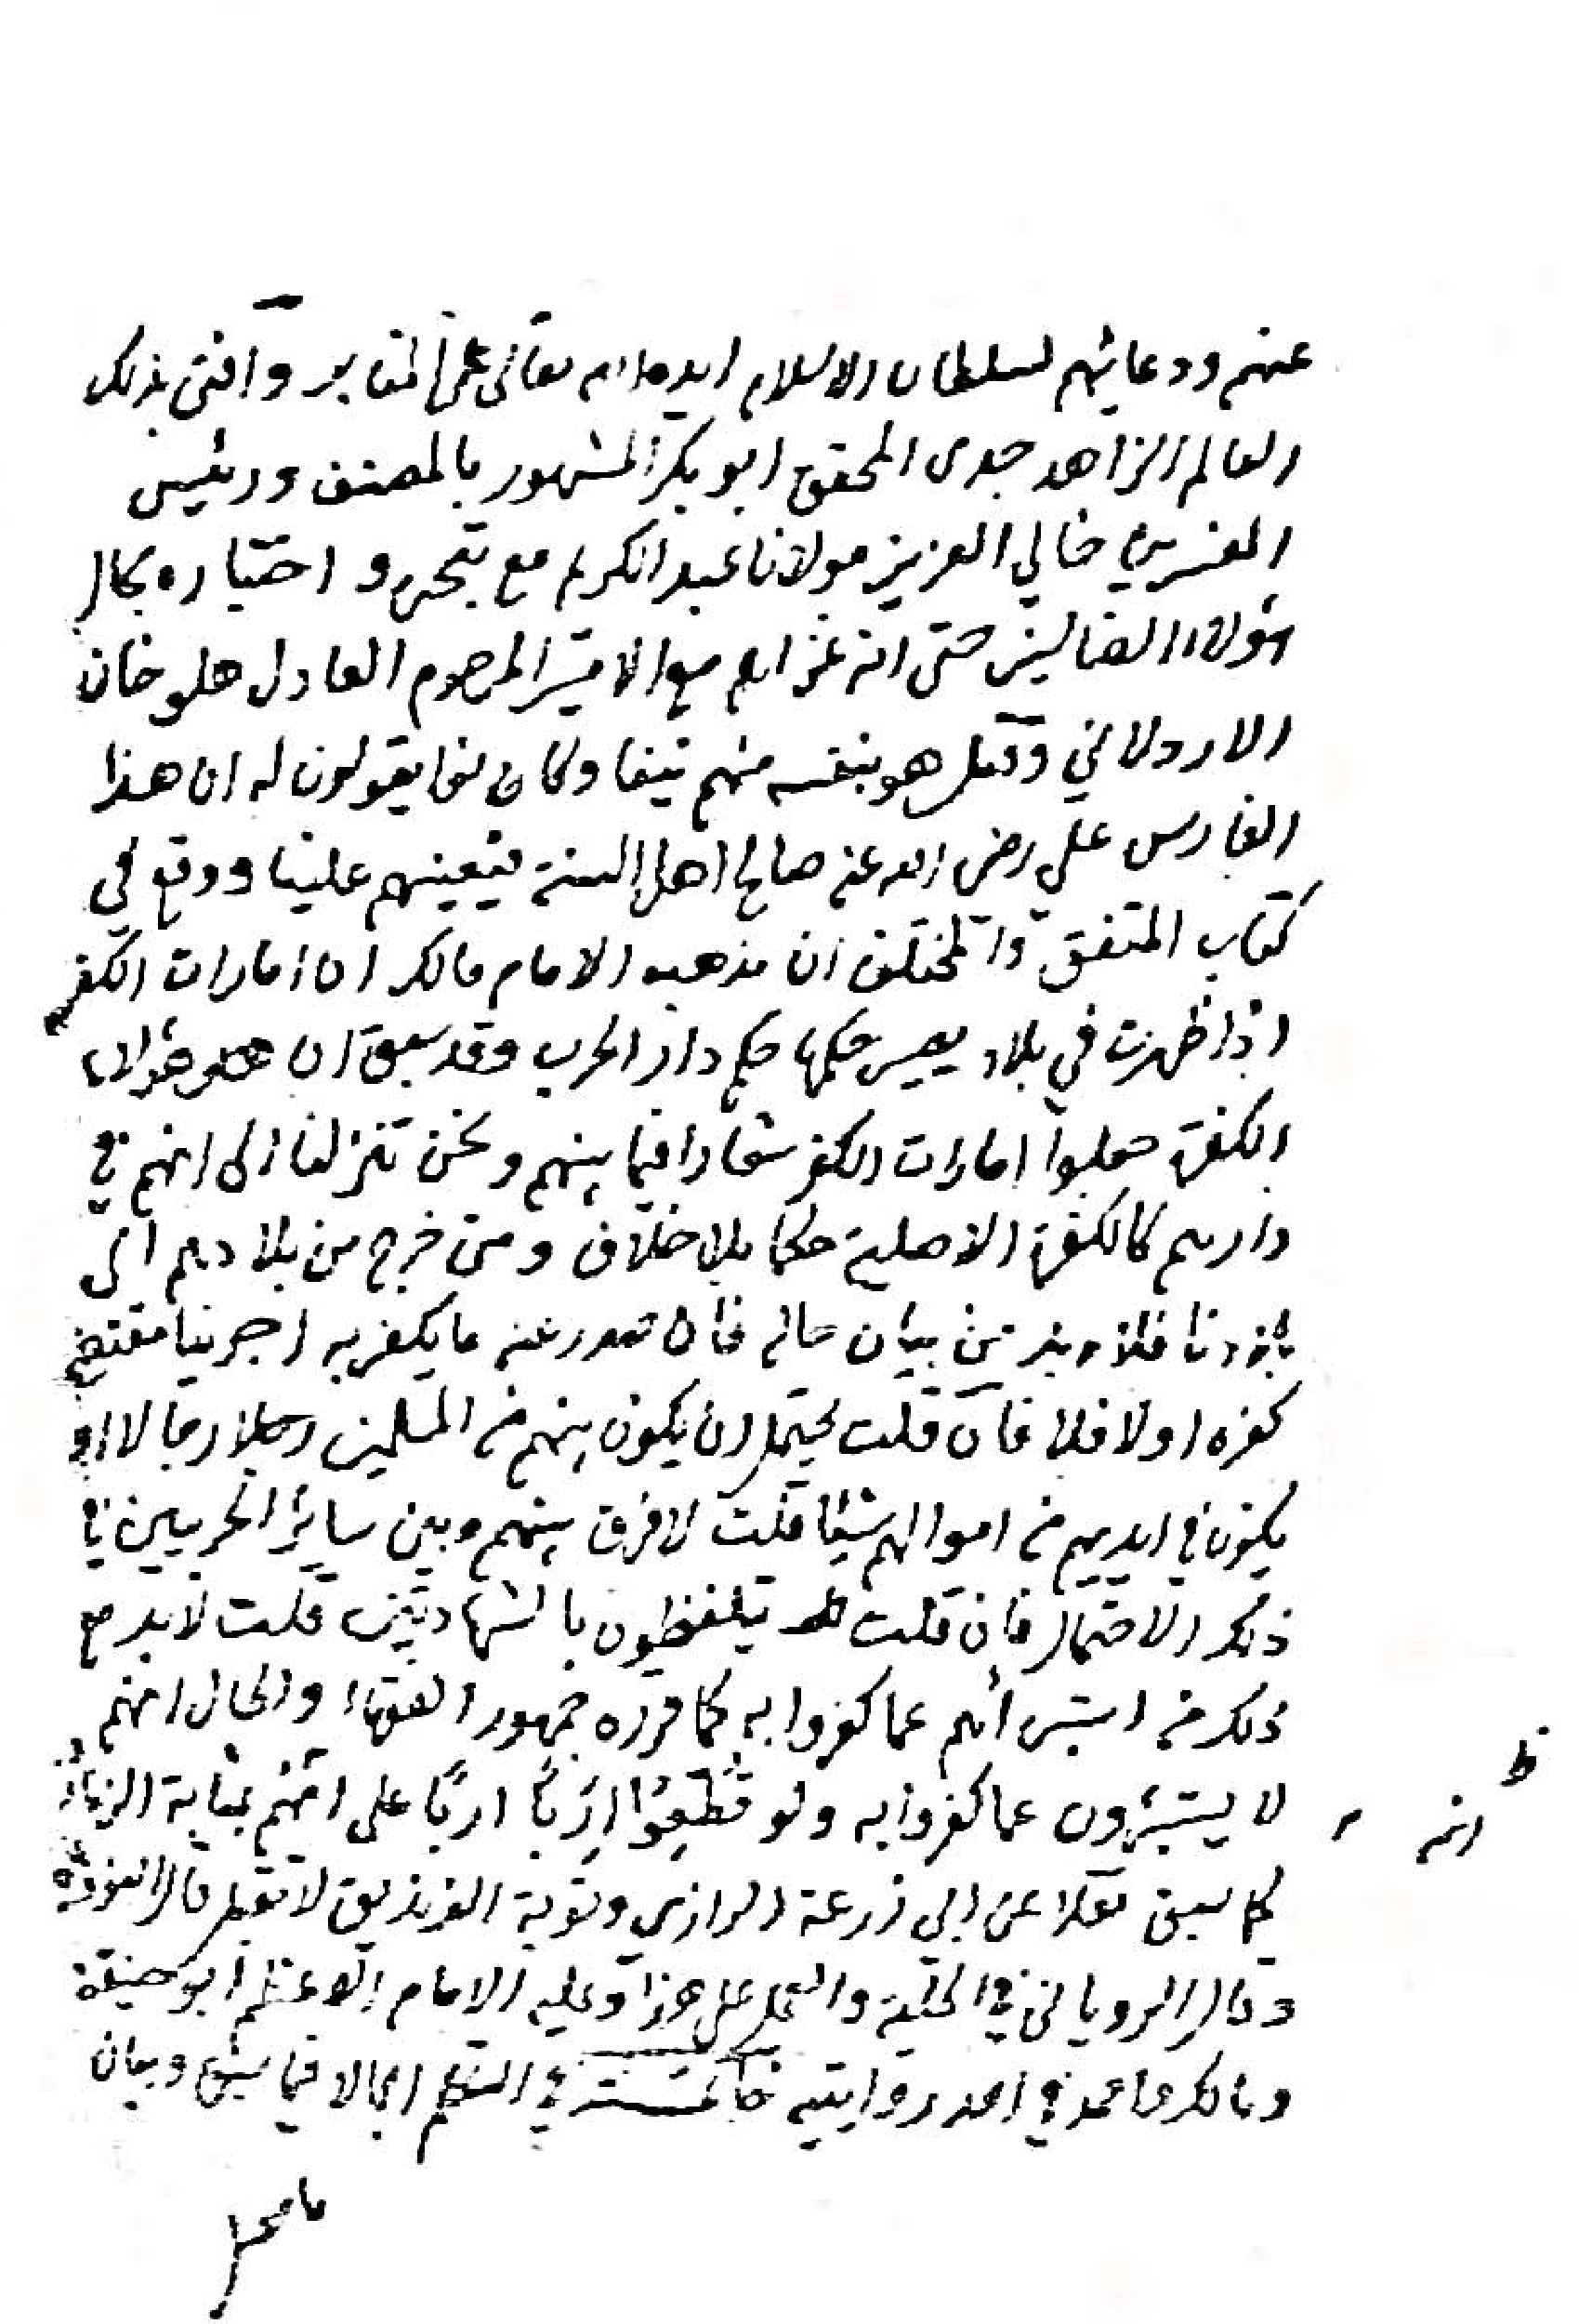 عنهم ودعائهم لسلطان الاسلام ايده الله تعالى على المنابر وافتى بذلك
العالم الزاهد جدى المحقق ابو بكر المشهور بالمصنف ورئيس
المفسرين خالي العزيز مولانا عبد الكريم مع تبحره واختياره بحال
هؤلاء الضالين حتى انه غزاهم مع الامير المرحوم العادل هلو خان
الاردلاني وقتل هو بنفسه منهم نيفا وكانوا يقولون له ان هذا
الفارس علي رضى الله عنه صالح اهل السنة يعينهم علينا ووقع في
كتاب المتفق والمختلف ان مذهب الامام مالك ان امارات الكفر
اذا ظهرت في بلاد يصير حكمها حكم دار الحرب وقد سبق ان هؤلاء
الكفرة جعلوا امارات الكفر شعارا فيما بينهم ونحن تنزلنا الى انهم في
دارهم كالكفرة الاصلية حكما بلا خلاف ومن خرج من بلادهم الى
بلادنا فلا بد من بيان حاله فان صدر عنه ما يكفر به اجرينا مقتضى
كفره اولا فلا فان قلت يحتمل ان يكون بينهم من المسلمين رجالا او
يكون في ايديهم من اموالهم شيئا قلت لا فرق بينهم وبين سائر الحربيين في
ذلك الاحتمال فان قلت يتلفظون بالشهادتين قلت لا بد مع
ذلك من استبرائهم عما كفروا به كما قرره جمهور الفقهاء والحال انهم
لا يستبرؤن عما كفروا به ولو قُطّعُوا اِرْبًا اربًا على انهم بمثابة الزنادقة
كما سبق نقلا عن ابي زرعة الرازي وتوبة الزنديق لا تقبل
وقال الروياني في الحلية والعمل على هذا وعليه الامام الاعظم ابو حنيفة
ومالك واحمد في احدى روايتيه خاتمة في التكلم اجمالا فيما سبق وبيان
ظ
انه